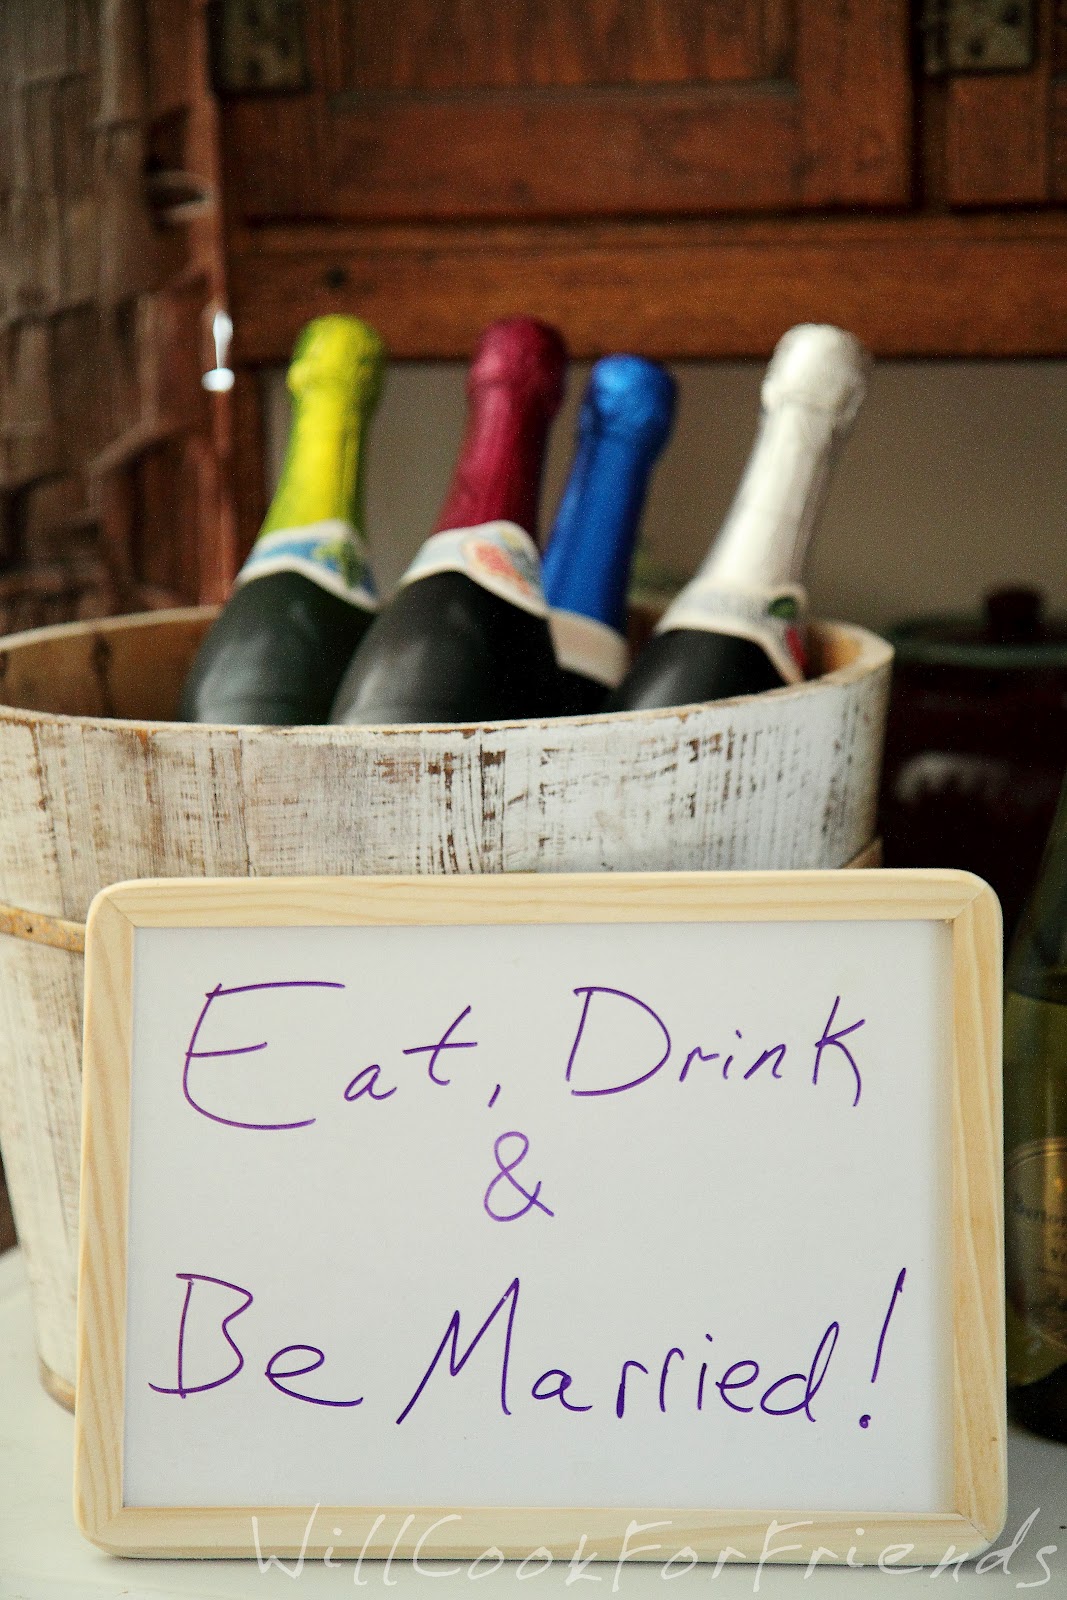 Eat, Drink
&
Be Married!
WillCookForFriends